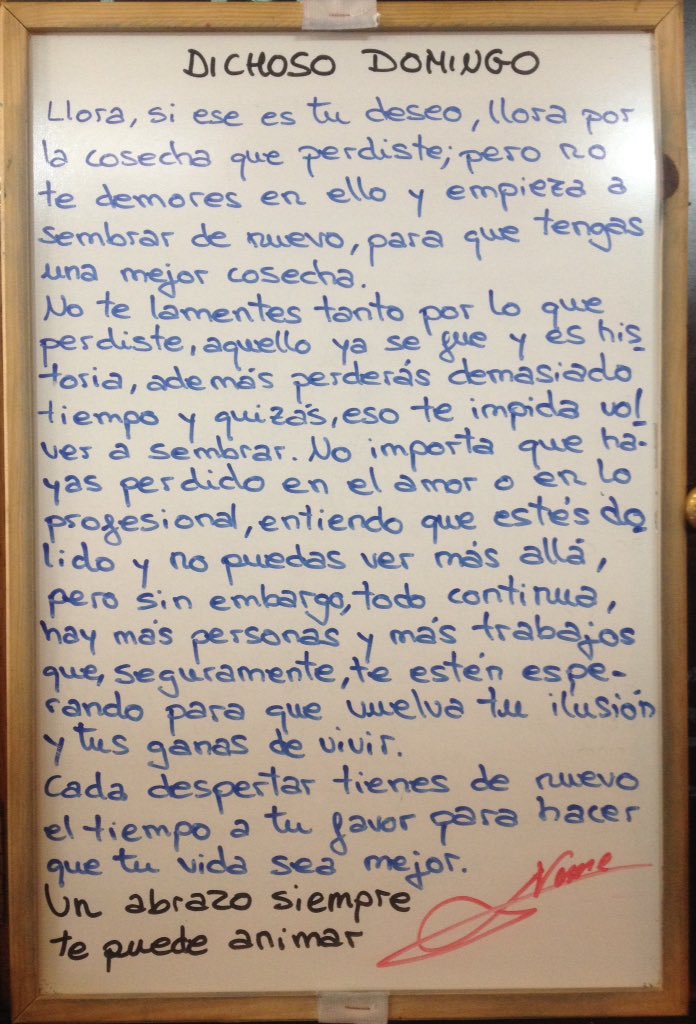 DICHOSO DOMINGO
Llora, si ese es tu deseo, llora por
la cosecha que perdiste; pero no
te demores en ello y empieza a
sembrar de nuevo, para que tengas
una mejor cosecha.
No te lamentes tanto por lo que
perdiste, aquello ya se fue y es his
toria, además perderás demasiado
tiempo y quizás, eso te impida vol
ver a sembrar. No importa que ha-
yas perdido en el amor o en lo
profesional, entiendo que estés do
lido y no puedas ver más allá,
pero sin embargo, todo continua,
hay más personas y más trabajos
que, seguramente, te estén espe-
rando para que vuelva tu ilusión
y tus ganas de vivir.
Cada despertar tienes de nuevo
el tiempo a tu favor para hacer
que tu vida sea mejor.
Un abrazo siempre
te puede animar